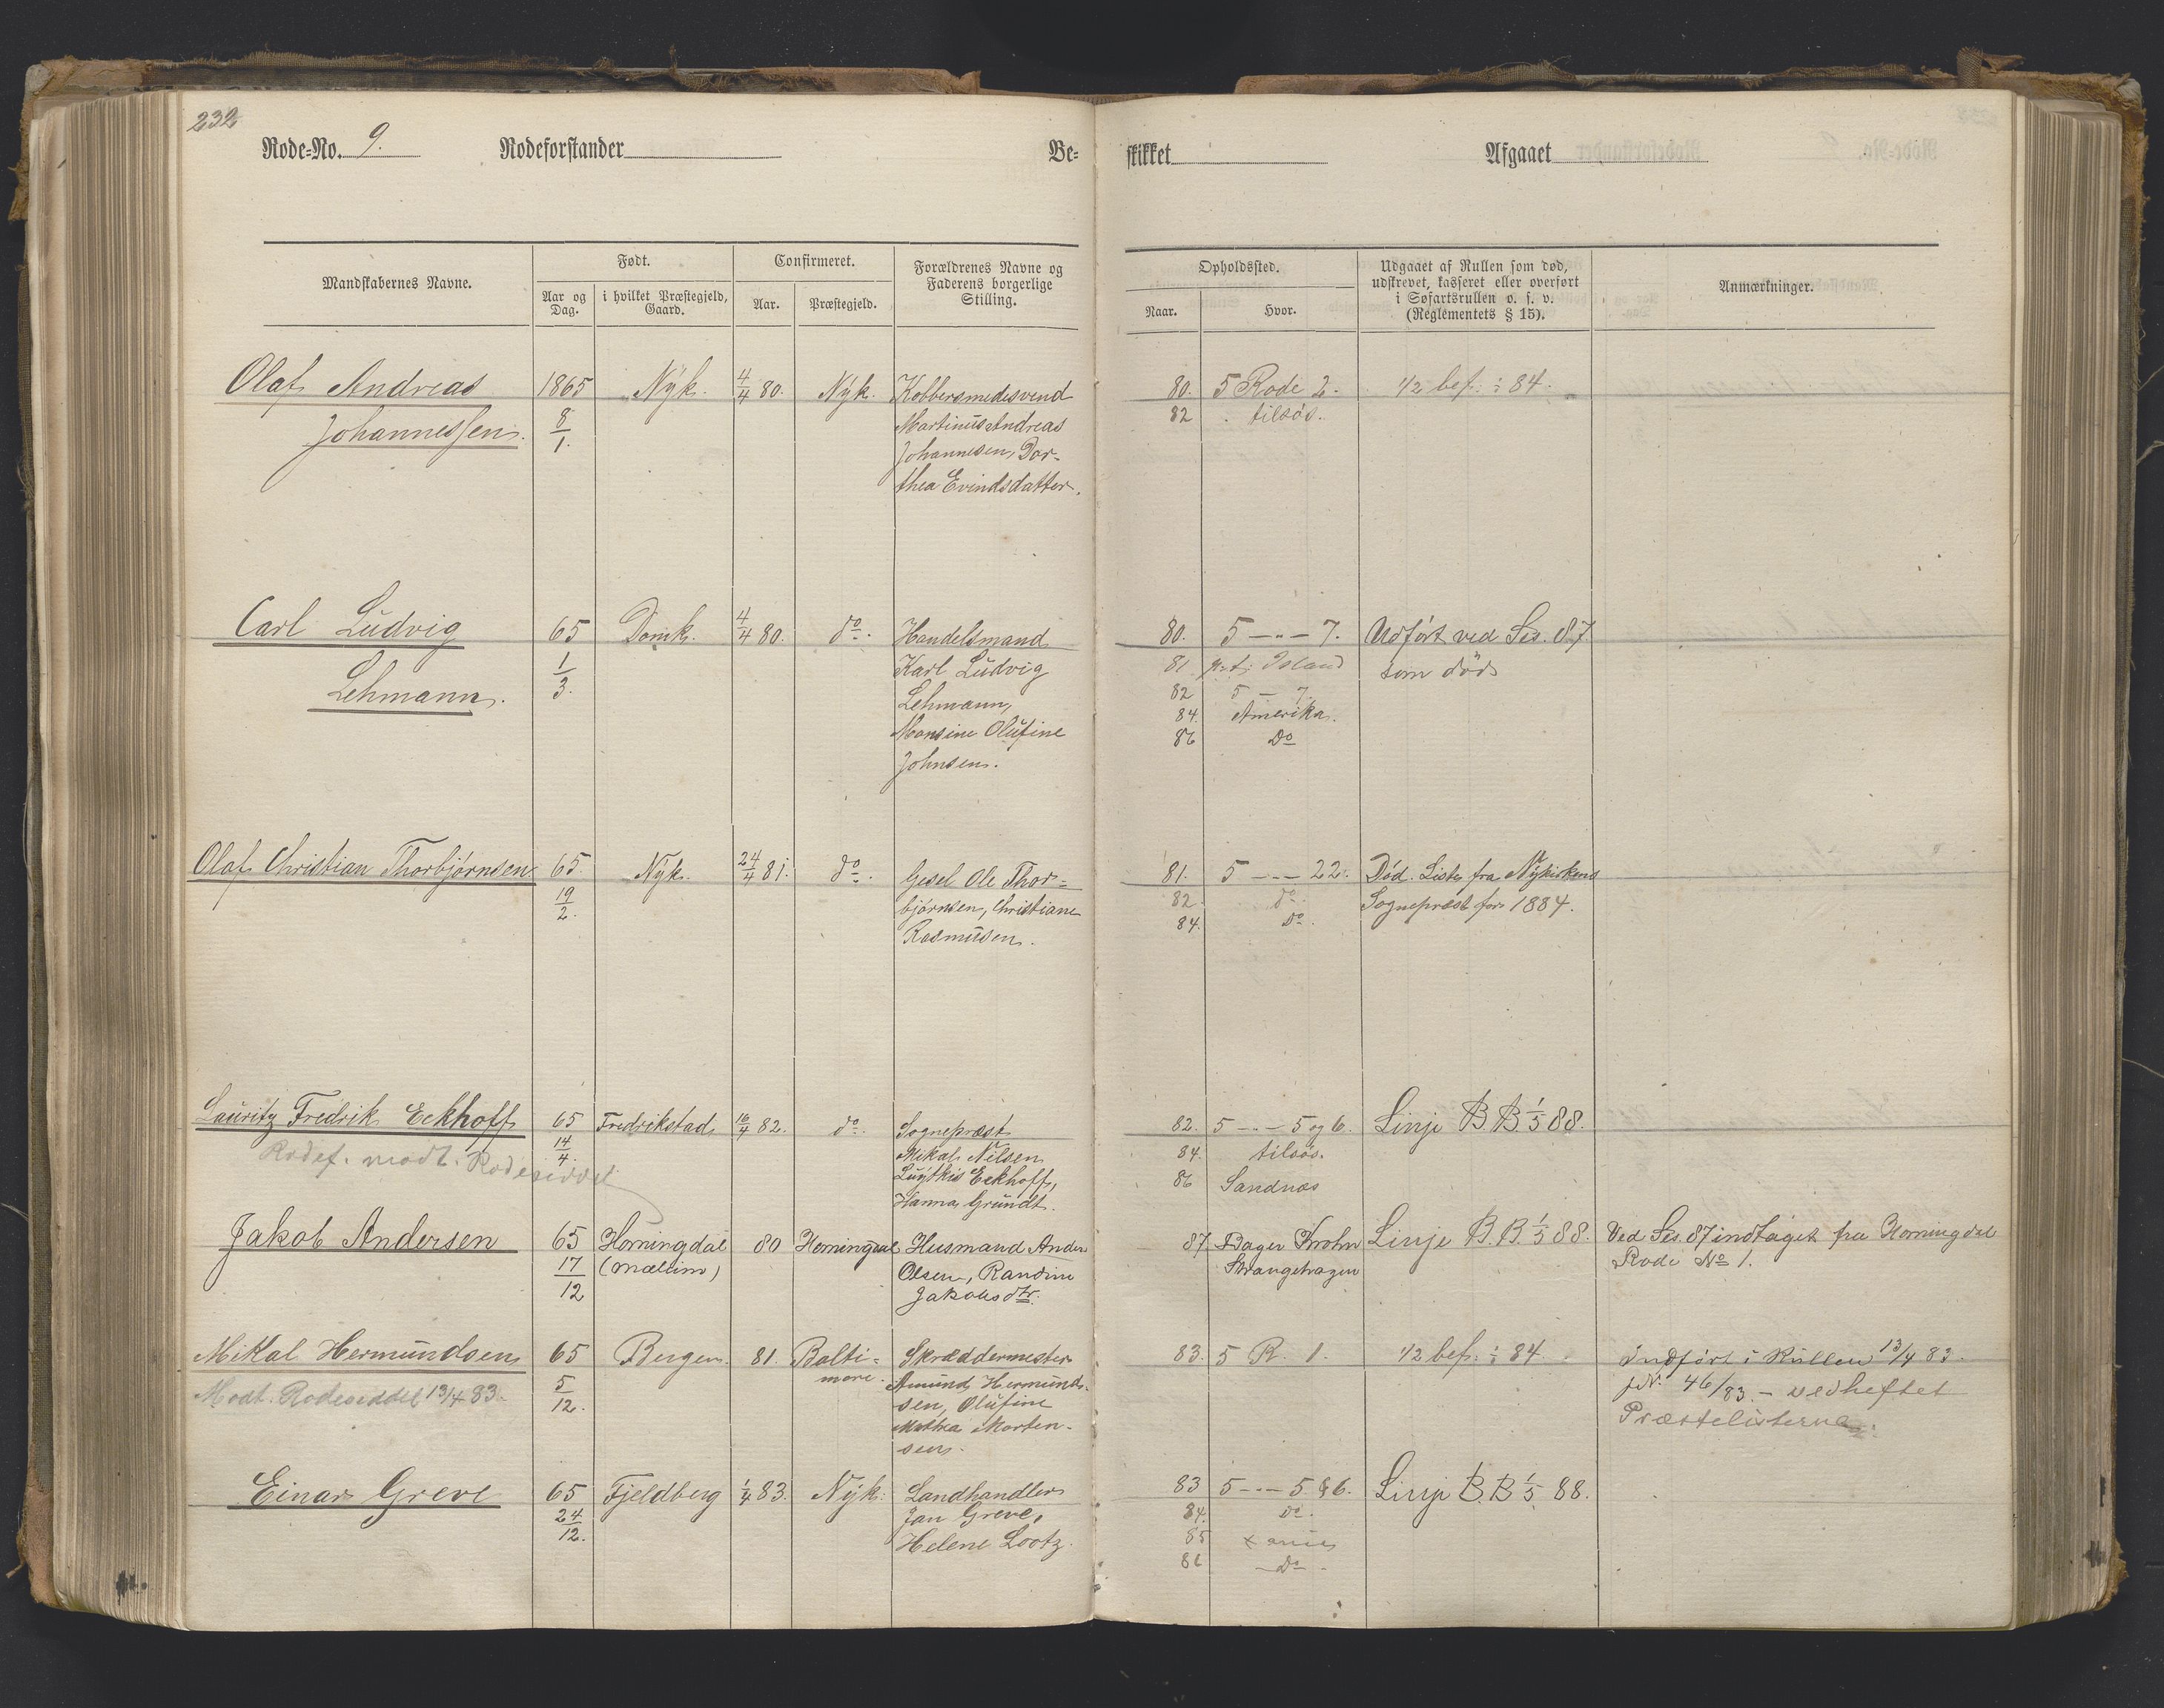 232
Rode=No. 9. Rodeforstander Be= skikket Afgaaet
Mandskabernes Navne. Født. Confirmeret. Forældrenes Navne og Faderens borgerlige Stilling. Opholdssted. Udgaaet af Rullen som død, udskrevet, kasseret eller overført i Søfartsrullen o. s. v. (Reglementets § 15). Anmærkninger.
Aar og Dag. i hvilket Præstegjeld, Gaard. Aar. Præstegjeld. Naar. Hvor.
Olaf Andreas 1865 Nyk. 4/4 80. Nyk. Kobbersmedesvend 80. 5 Rode 2. 1/2 bef. ÷ 84.
Johannessen. 8/1. Martinus Andreas 82 tilsøs.
Johannesen, Dor-
thea Evindsdatter.
Carl Ludvig 65 Domk. 4/4 80. do. Handelsmand 80. 5 -"- 7. Udført ved Ses. 87
Lehmann. 1/3. Karl Ludvig 81 p.t. Island som død
Lehmann, 82 5 - 7.
Monsine Olufine 84. Amerika.
Johnsen. 86 Do
Olaf Christian Thorbjørnsen 65. Nyk. 24/4 81. do. Gesel Ole Thor= 81. 5 -"- 22. Død. Liste fra Nykirkens
19/2. bjørnsen, Christiane 82. do. Sognepræst for 1884.
Rasmusen. 84. Do.
Lauritz Fredrik Eckhoff 65 Fredrikstad 16/4 82. do. Sognepræst 82. 5 -"- 5 og 6. Linje B. B. 1/5 88.
Rodef. modt. Rodeseddel 14/4. Mikal Nilsen 84. tilsøs.
Eckhoff, 86 Sandnæs
Hanna Grundt.
Jakob Andersen 65 Horningdal 80 Horningdal Husmand Anders 87 Krohn Linje B. B. 1/5 88. Ved Ses. 87 indtaget fra Horningdal
17/12 Olsen, Randine Rode No 1.
Jakobsdtr.
Mikal Hermundsen 65 Bergen. 81. Balti= Skræddermester 83. 5 R. 1. 1/2 bef. ÷ 84. Indført i Rullen 13/4 83.
Modt. Rodeseddel 13/4 83. 5/12. more. Amund Hermund- 46/83. - vedheftet
sen, Olufine Præstelisterne.
Morten-
sen.
Einar Greve 65 Fjeldberg 1/4 83. Nyk. Landhandler 83 5 -"- 5 & 6. Linje B. B. 1/5 88.
24/12. Jan Greve, 84. do.
Helene Lootz. 85
86 Do.